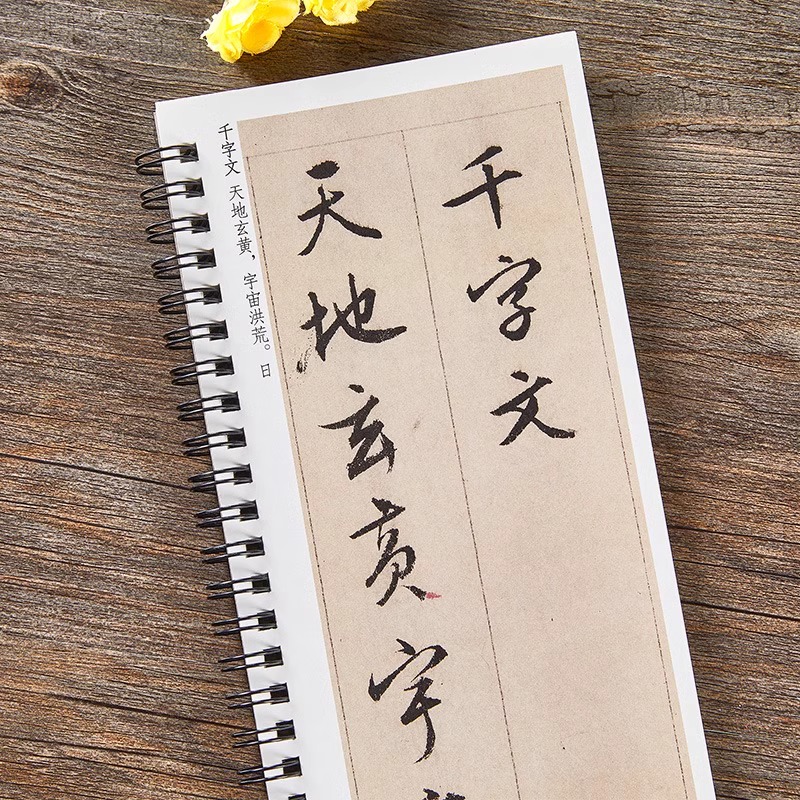 千字文
天地玄黄宇
千字文 天地玄黄，宇宙洪荒。日